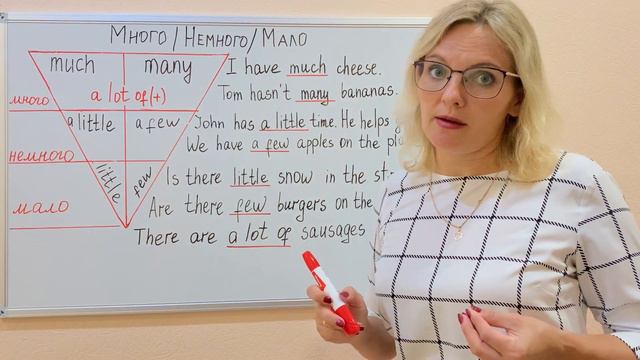 Много/Немного/Мало
much many
a lot of (+)
много
a little a few
немного
little few
мало
I have much cheese.
Tom hasn't many bananas.
John has a little time. He helps
We have a few apples on the
Is there little snow in the
Are there few burgers on the
There are a lot of sausages